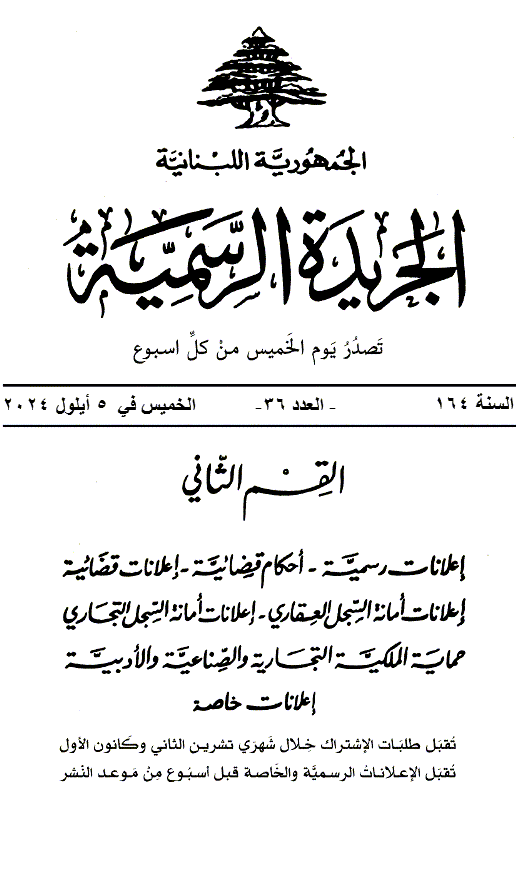 الجمهوريَّة اللبنانيَّة
الجَريدَة الرسَّميَّة
تَصدُرُ يَوم الخَميس منْ كلِّ اسبوع
السنة ١٦٤ ـ العدد ٣٦- الخميس في ٥ أيلول ٢٠٢٤
القِسْم الثّاني
إعلانات رسميَّة - أحكام قضائيَّة - إعلانات قضائية
إعلانات أمانة السِّجل العِقاري - إعلانات أمانة السِّجل التجاري
حماية الملكيَّة التجارية والصِّناعيَّة والأدبيَّة
إعلانات خاصة
تُقبَل طلبَات الإشتراك خِلال شَهرَي تشرين الثاني وكَانون الأول
تُقبَل الإعلاناتُ الرسميَّة والخَاصة قبل أسبُوع مِنْ مَوعد النَشر